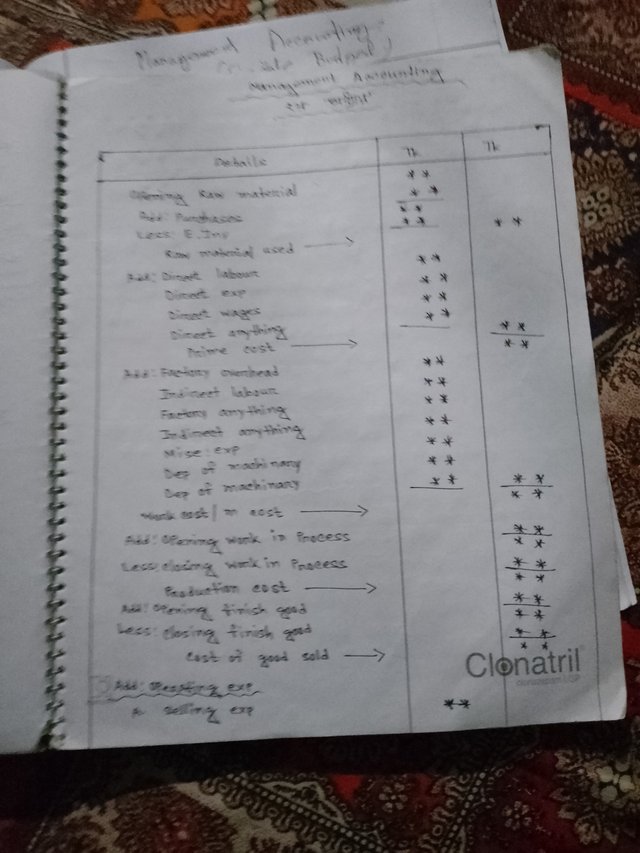 Management Accounting
Management Accounting
Details Tk Tk
Opening Raw material **
Add: Purchases **
**
Less: E. Inv **
Raw material used → **
Add: Direct labour **
Direct exp **
Direct wages **
Direct anything **
**
Prime cost → **
Add: Factory overhead **
Indirect labour **
Factory anything **
Indirect anything **
Misc: exp **
Dep of machinary **
Dep of machinary **
**
Work cost / m cost → **
Add: Opening work in Process **
**
Less: closing work in Process **
Production cost → **
Add: Opening finish good **
**
Less: closing finish good **
Cost of good sold → **
Clonatril
Add: Operating exp
selling exp **